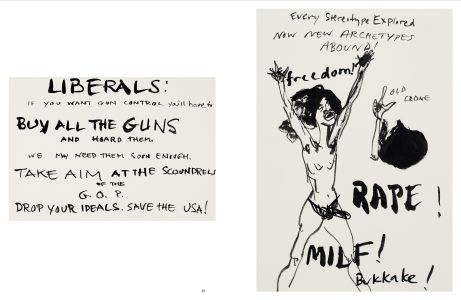 LIBERALS:
IF YOU WANT GUN CONTROL you'll have to
BUY ALL THE GUNS
AND HOARD THEM.
WE MAY NEED THEM SOON ENOUGH.
TAKE AIM AT THE SCOUNDRELS
OF THE
G.O.P.
DROP YOUR IDEALS. SAVE THE USA!
Every Stereotype Explored
NOW NEW ARCHETYPES
ABOUND!
freedom!
OLD
CRONE
RAPE!
MILF!
Bukkake!